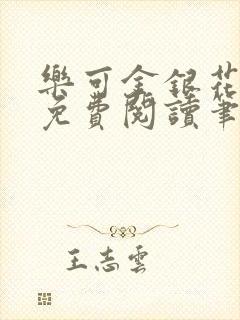 樂可金銀花
免費閱讀筆
王志雲